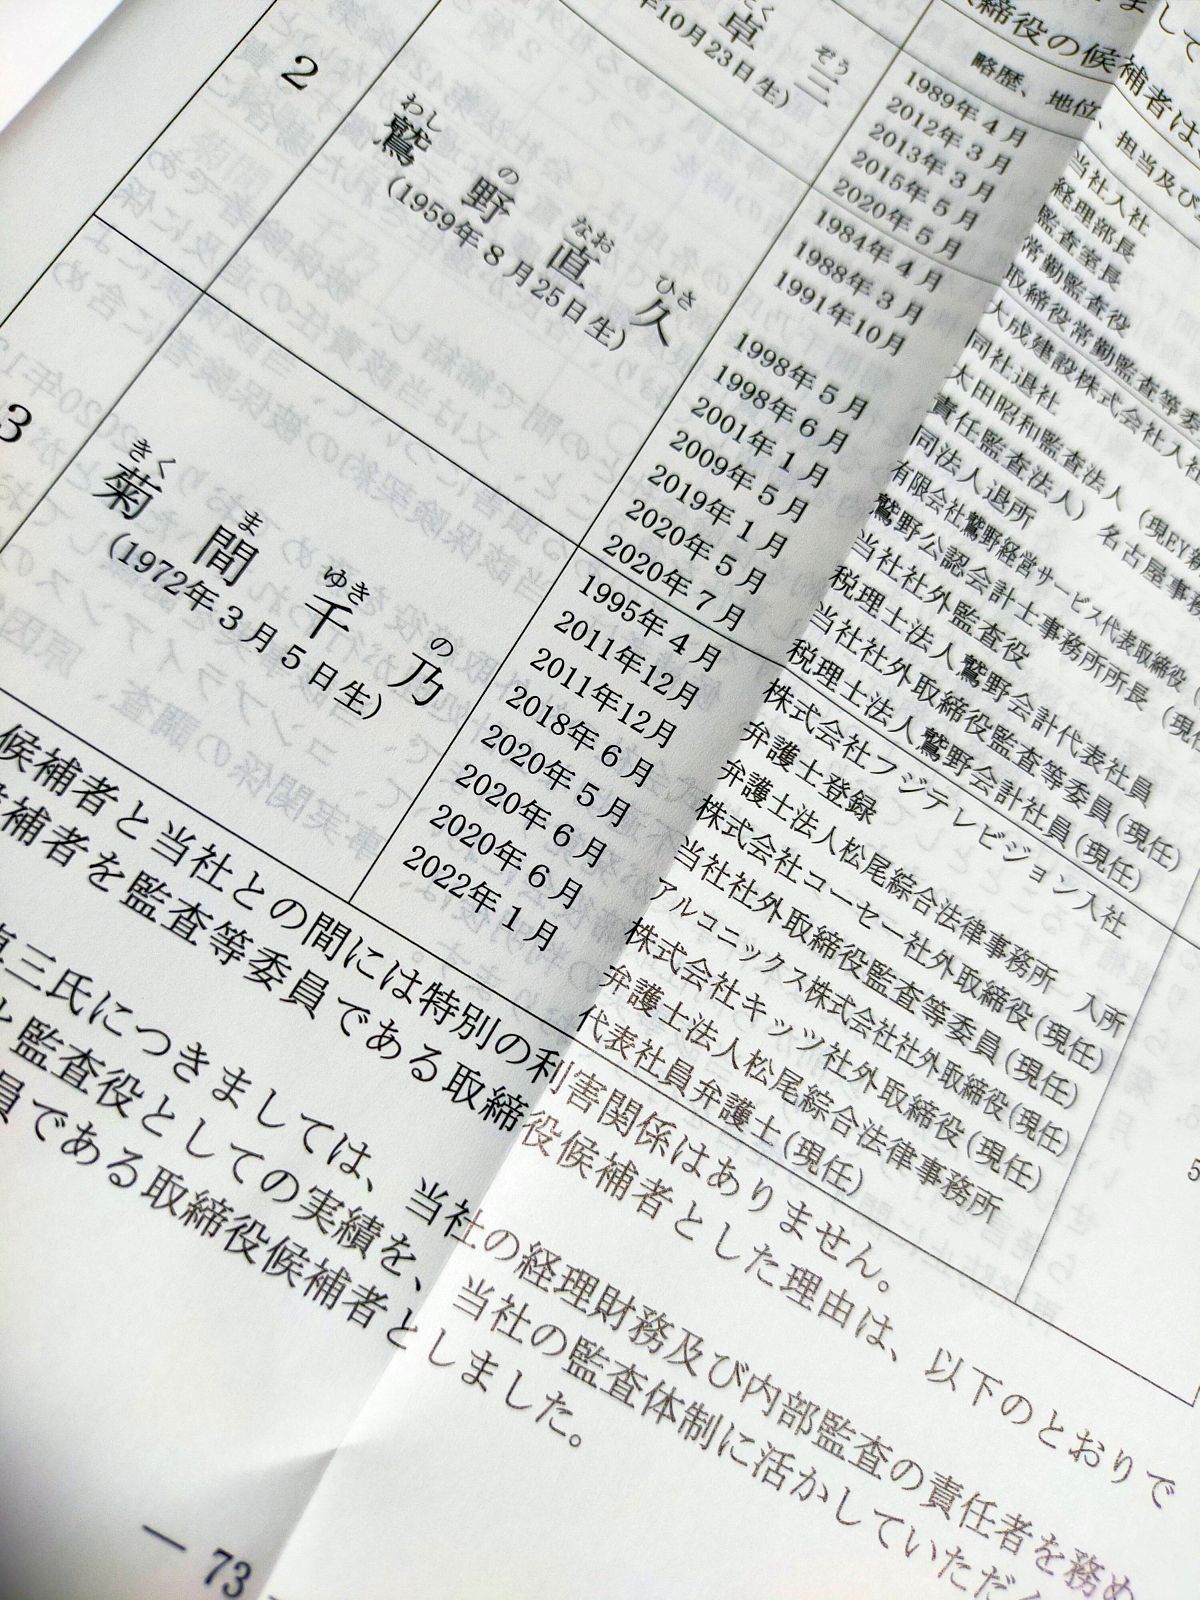 取締役の候補者は
略歴、地位、担当及び
たく ぞう
卓 三
年10月23日生)
1989年4月 当社入社
2012年3月 経理部長
2013年3月 監査室長
2015年5月 常勤監査役
2020年5月 取締役常勤監査等委
2
わし の なお ひさ
鷲 野 直 久
(1959年8月25日生)
1984年4月 大成建設株式会社入社
1988年3月 同社退社
1991年10月 太田昭和監査法人(現EY新
責任監査法人)名古屋事務
1998年5月 同法人退所
1998年6月 有限会社鷲野経営サービス代表取締役
2001年1月 鷲野公認会計士事務所所長(現任
2009年5月 当社社外監査役
2019年1月 税理士法人鷲野会計代表社員
2020年5月 当社社外取締役監査等委員(現任)
2020年7月 税理士法人鷲野会計社員(現任)
3
きく ま ゆき の
菊 間 千 乃
(1972年3月5日生)
1995年4月 株式会社フジテレビジョン入社
2011年12月 弁護士登録
2011年12月 弁護士法人松尾綜合法律事務所 入所
2018年6月 株式会社コーセー社外取締役(現任)
2020年5月 当社社外取締役監査等委員(現任)
2020年6月 アルコニックス株式会社社外取締役(現任)
2020年6月 株式会社キッツ社外取締役(現任)
2022年1月 弁護士法人松尾綜合法律事務所
代表社員弁護士(現任)
5
候補者と当社との間には特別の利害関係はありません。
候補者を監査等委員である取締役候補者とした理由は、以下のとおりで
三氏につきましては、当社の経理財務及び内部監査の責任者を務め
監査役としての実績を、当社の監査体制に活かしていただ
員である取締役候補者としました。
— 73